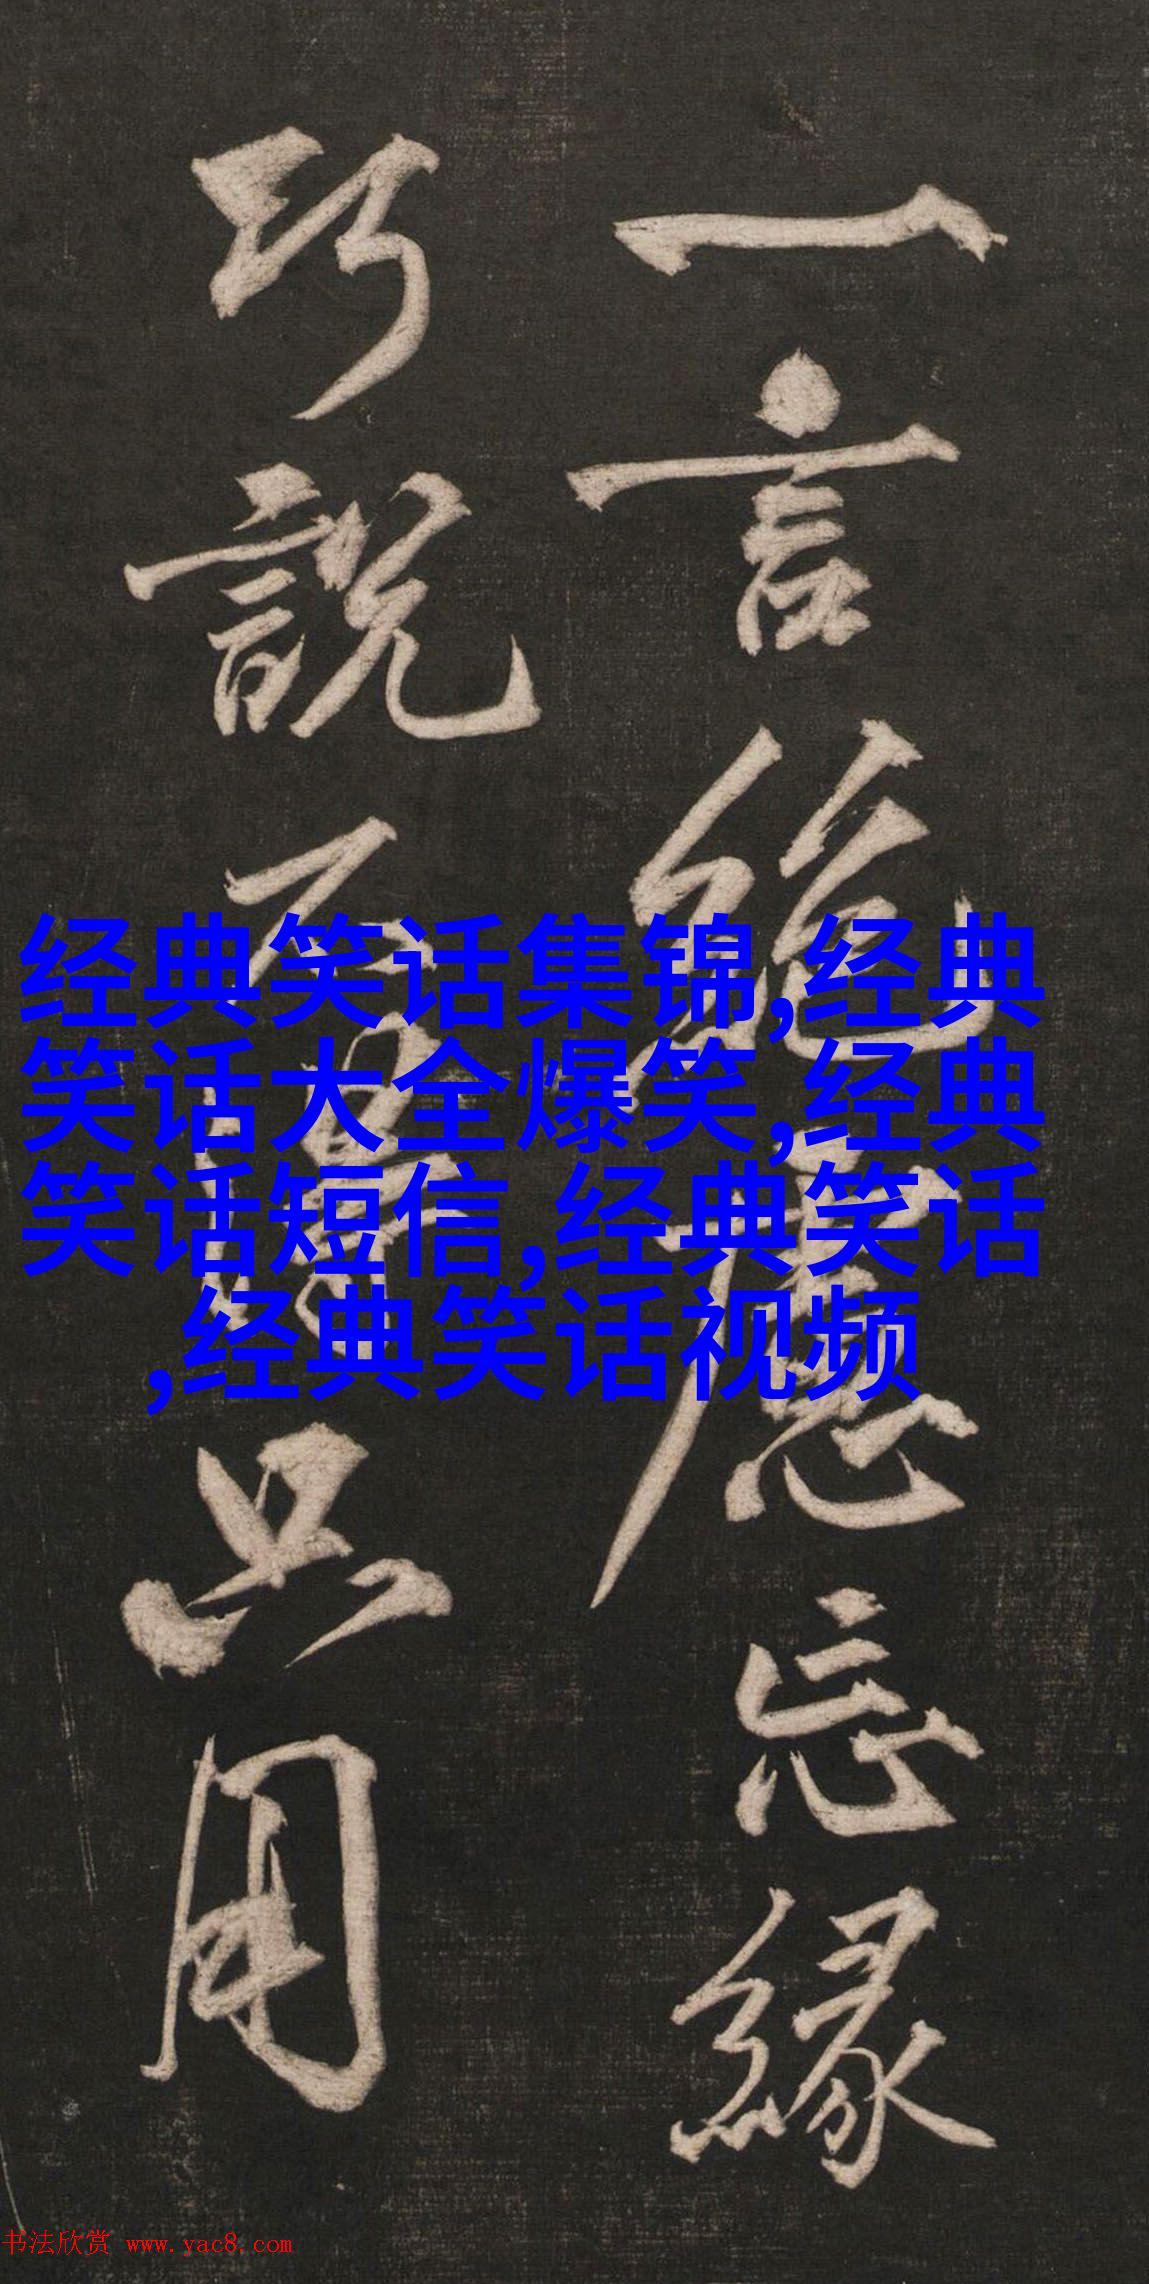 一言絶慮忘緣
巧說不得只用
经典笑话集锦,经典
笑话大全爆笑,经典
笑话短信,经典笑话
,经典笑话视频
书法欣赏 www.yac8.com